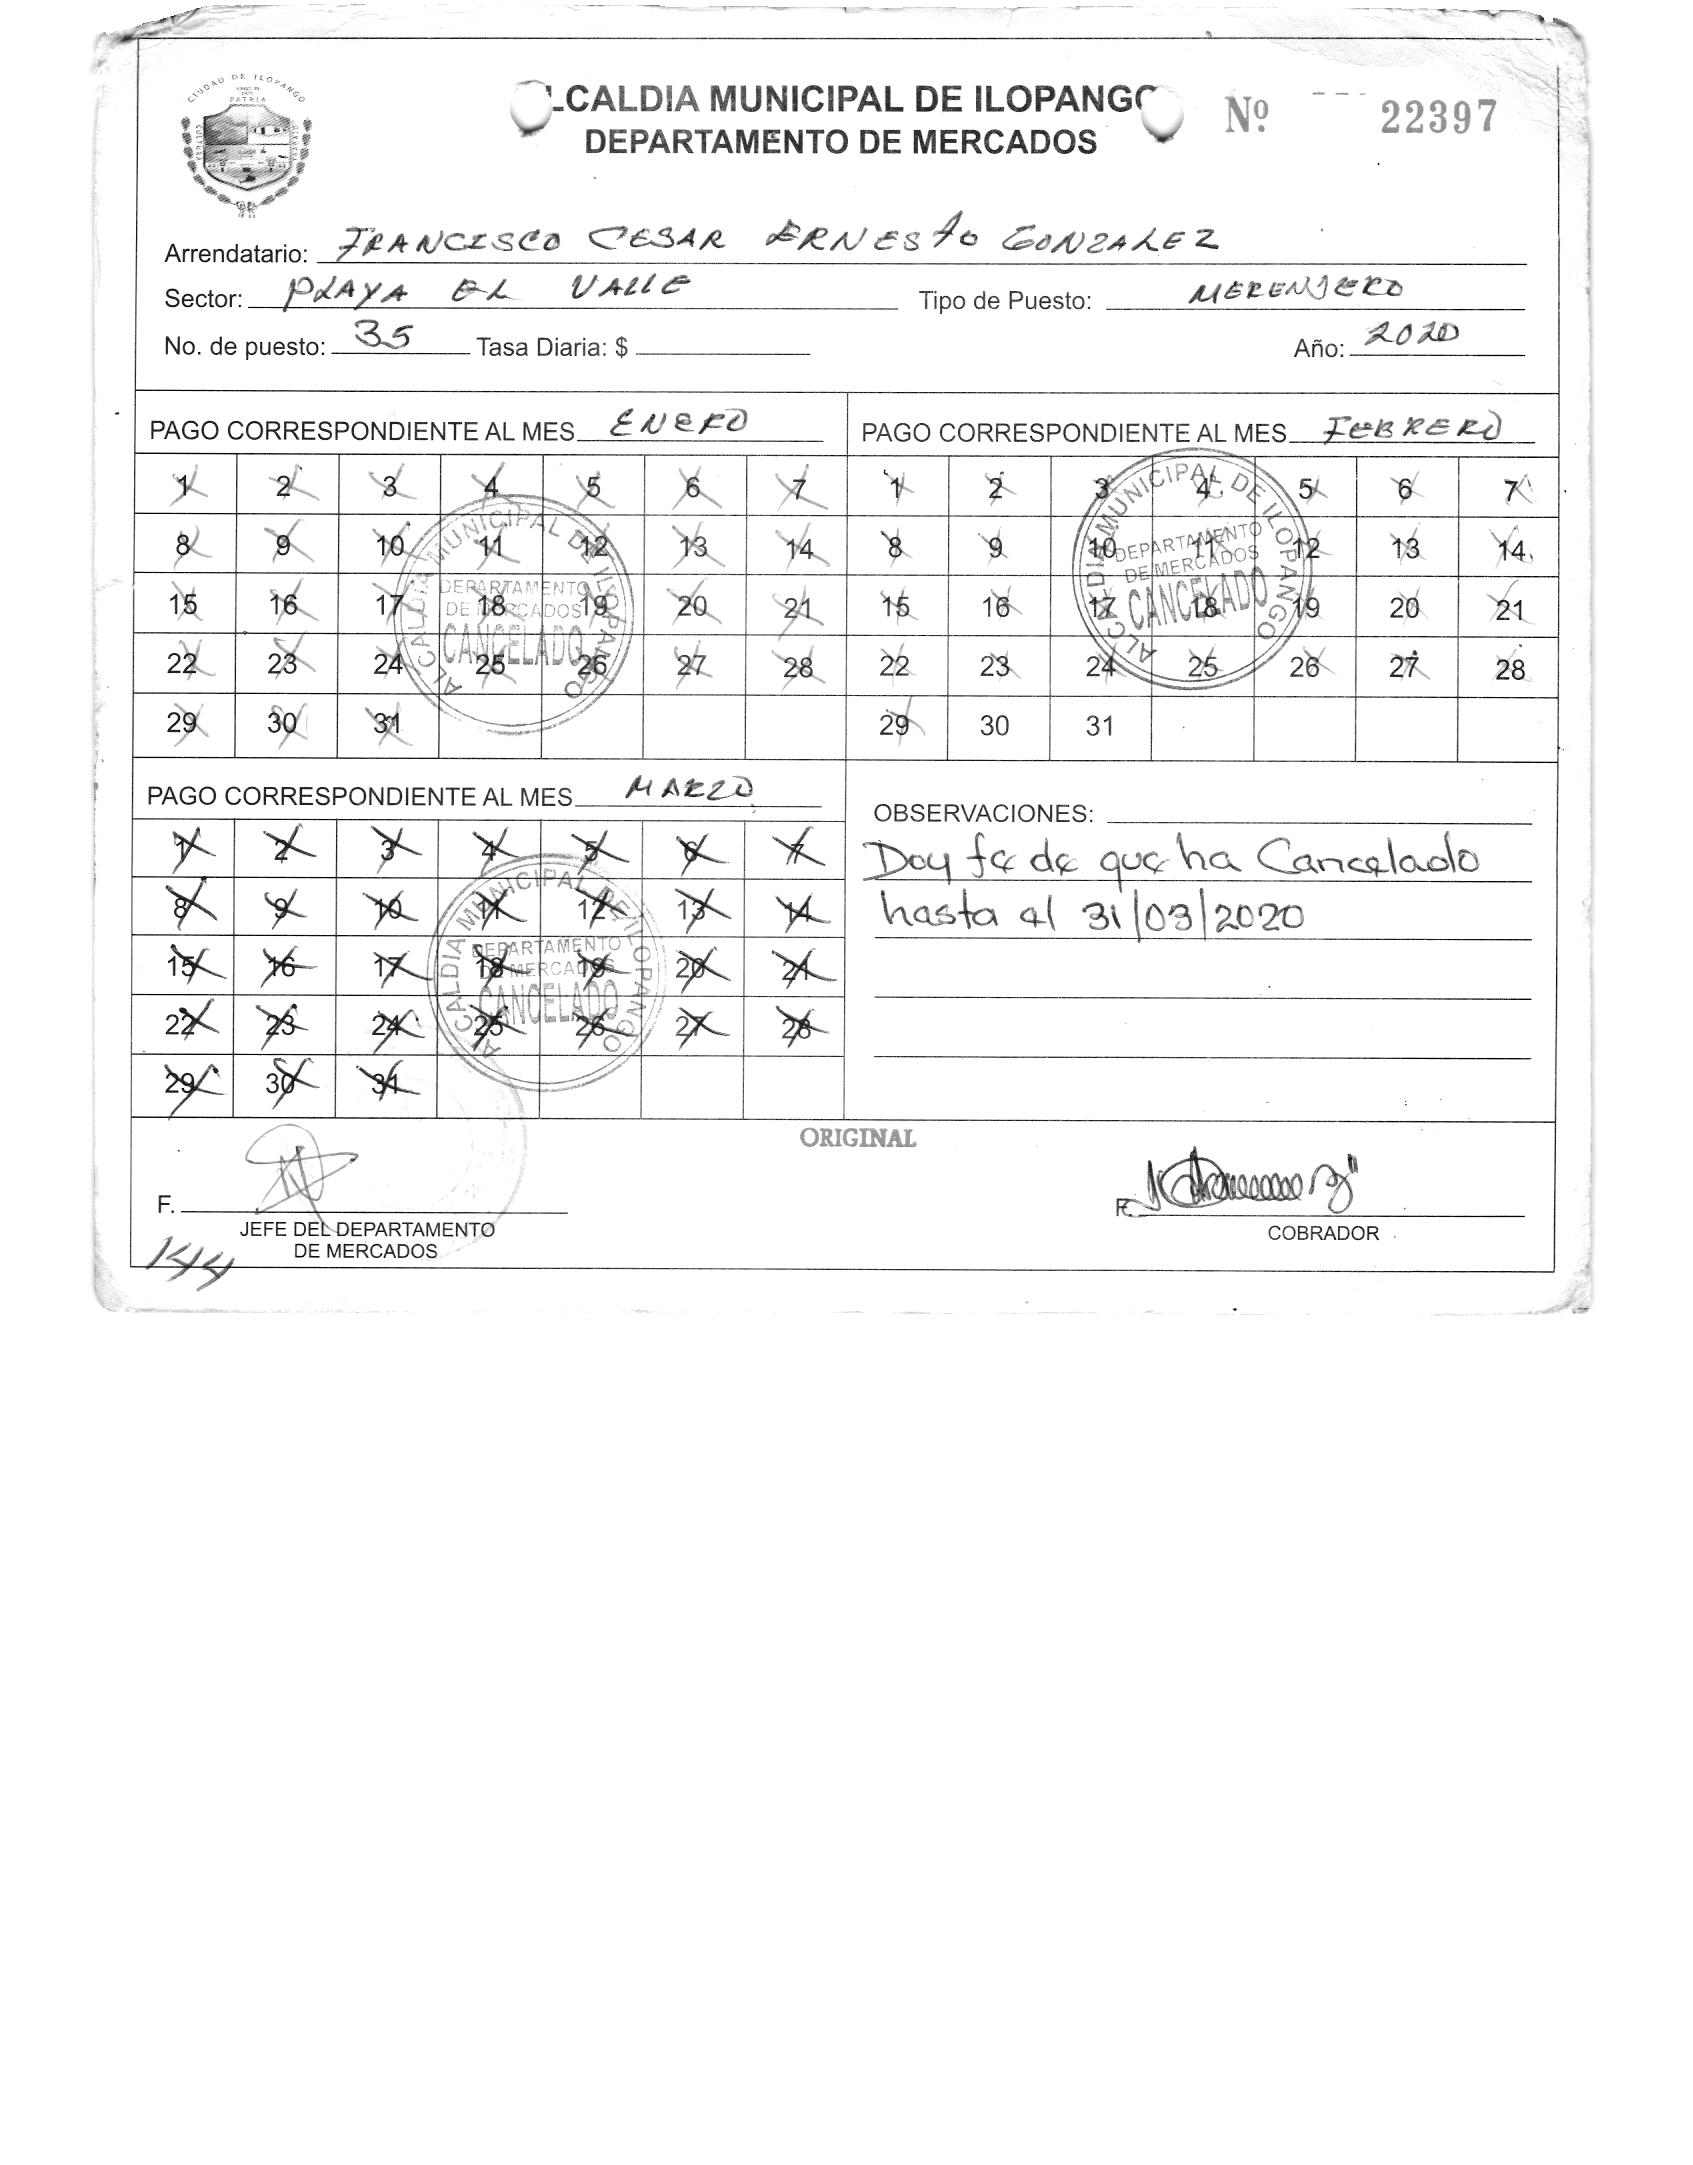 CIUDAD DE ILOPANGO
PATRIA
CULTURA
LCALDIA MUNICIPAL DE ILOPANGO
DEPARTAMENTO DE MERCADOS
Nº 22397
Arrendatario: FRANCISCO CESAR ERNESTO GONZALEZ
Sector: PLAYA EL VALLE Tipo de Puesto: MERENJERO
No. de puesto: 35 Tasa Diaria: $ Año: 2020
PAGO CORRESPONDIENTE AL MES ENERO
1 2 3 4 5 6 7
8 9 10 11 12 13 14
15 16 17 18 19 20 21
22 23 24 25 26 27 28
29 30 31
ALCALDIA MUNICIPAL DE ILOPANGO
DEPARTAMENTO
DE MERCADOS
CANCELADO
PAGO CORRESPONDIENTE AL MES FEBRERO
1 2 3 4 5 6 7
8 9 10 11 12 13 14
15 16 17 18 19 20 21
22 23 24 25 26 27 28
29 30 31
ALCALDIA MUNICIPAL DE ILOPANGO
DEPARTAMENTO
DE MERCADOS
CANCELADO
PAGO CORRESPONDIENTE AL MES MARZO
1 2 3 4 5 6 7
8 9 10 11 12 13 14
15 16 17 18 19 20 21
22 23 24 25 26 27 28
29 30 31
ALCALDIA MUNICIPAL DE ILOPANGO
DEPARTAMENTO
DE MERCADOS
CANCELADO
OBSERVACIONES:
Doy fe de que ha Cancelado
hasta el 31/03/2020
ORIGINAL
F.
JEFE DEL DEPARTAMENTO
DE MERCADOS
F.
COBRADOR
144